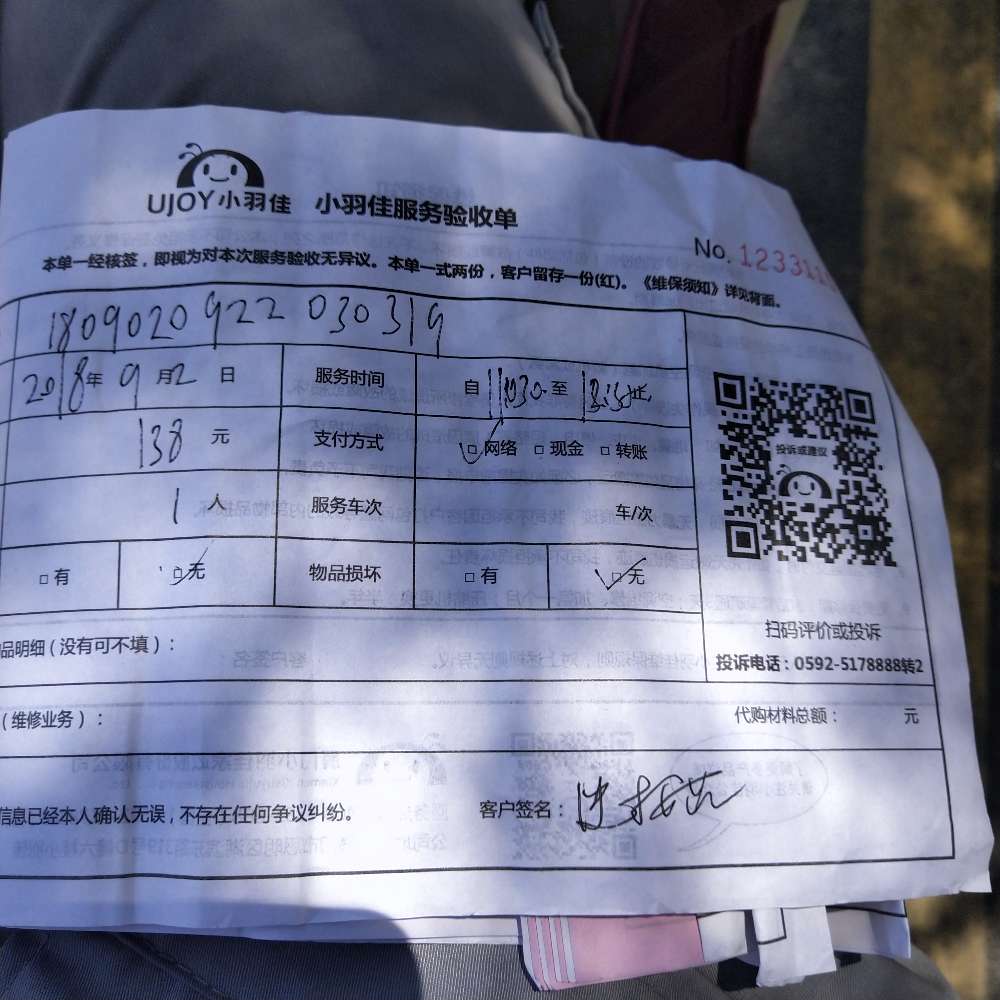 UJOY小羽佳 小羽佳服务验收单
No. 123311
本单一经核签，即视为对本次服务验收无异议。本单一式两份，客户留存一份(红)。《维保须知》详见背面。
1809020922030319
2018年9月2日 服务时间 自 至
138 元 支付方式 □网络 □现金 □转账
投诉或建议
1 人 服务车次 车/次
□有 □无 物品损坏 □有 □无
扫码评价或投诉
品明细(没有可不填)：
投诉电话：0592-5178888转2
(维修业务)： 代购材料总额： 元
信息已经本人确认无误，不存在任何争议纠纷。 客户签名：